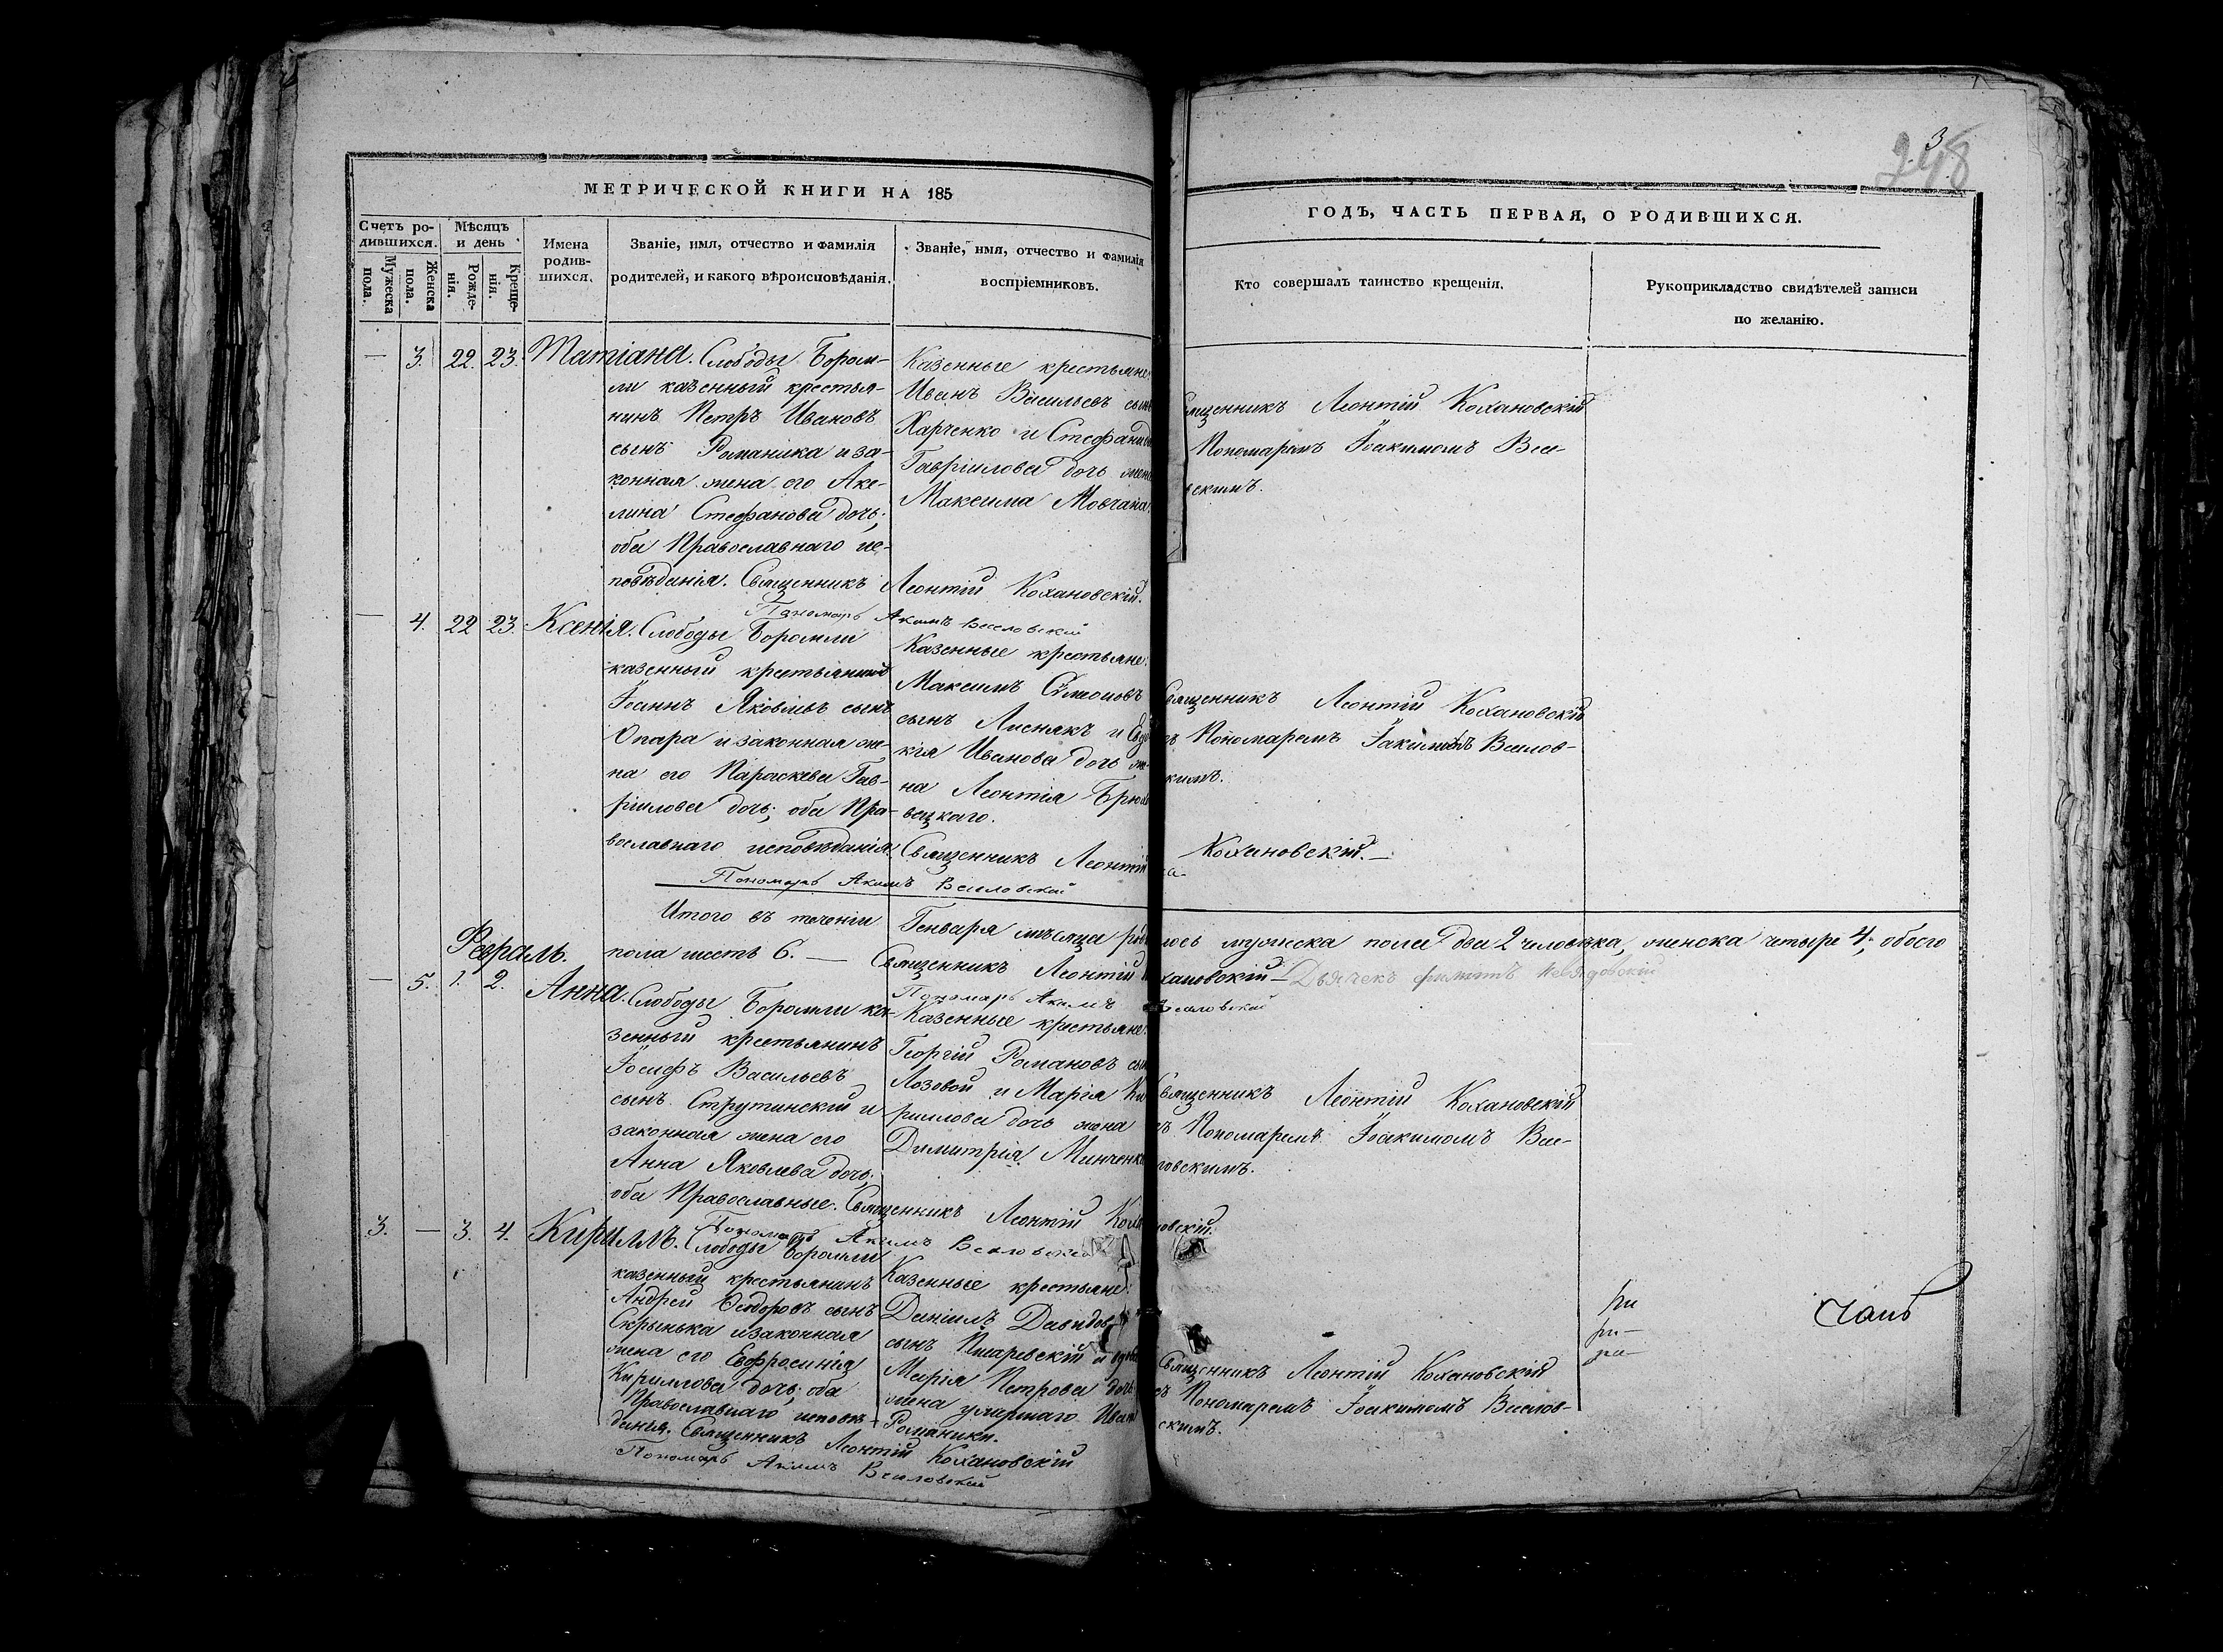 3
248
МЕТРИЧЕСКОЙ КНИГИ НА 185
ГОДЪ, ЧАСТЬ ПЕРВАЯ, О РОДИВШИХСЯ.
Счетъ ро-
дившихся.
Мужеска
пола.
Женска
пола.
Мѣсяцъ
и день
Рожде-
нія.
Креще-
нія.
Имена
родив-
шихся.
Званіе, имя, отчество и фамилія
родителей, и какого вѣроисповѣданія.
Званіе, имя, отчество и фамилія
воспріемниковъ.
Кто совершалъ таинство крещенія.
Рукоприкладство свидѣтелей записи
по желанію.
— 3. 22. 23. Татіана.
Слободы Бором-
ли казенный крестья-
нинъ Петръ Ивановъ
сынъ Романика и за-
конная жена его Аке-
лина Стефанова дочь;
оба Православнаго ис-
повѣданія. Священникъ Леонтій Кохановскій.
Пономарь Акимъ Веселовскій
Казенные крестьяне:
Иванъ Васильевъ сынъ
Харченко и Стефанида
Гавріилова дочь жена
Максима Мовчана.
Священникъ Леонтій Кохановскій
Пономаремъ Іоакимомъ Весе-
вскимъ.
— 4. 22 23. Ксенія.
Слободы Боромли
казенный крестьянинъ
Іоаннъ Яковлевъ сынъ
Опара и законная же-
на его Параскева Гав-
ріилова дочь; оба Пра-
вославнаго исповѣданія.
Казенные крестьяне:
Максимъ Симоновъ
сынъ Лиснякъ и Евдо
кія Иванова дочь же
на Леонтія Брю
вецкаго.
Священникъ Леонтій Кохановскій.—
Пономарь Акимъ Веселовскій
Священникъ Леонтій Кохановскій
съ Пономаремъ Іакимомъ Веселов-
скимъ.
Итого въ теченіи Генваря мѣсяца родилось мужеска пола два 2 человѣка, женска четыре 4; обоего
пола шесть 6. — Священникъ Леонтій Кохановскій — Дьячекъ
Пономарь Акимъ Веселовскій
Февраль.
— 5. 1. 2. Анна.
Слободы Боромли ка-
зенный крестьянинъ
Іосифъ Васильевъ
сынъ Струтинскій и
законная жена его
Анна Яковлева дочь;
оба Православные. Священникъ Леонтій Кохановскій.
Пономарь Акимъ Веселовскій
Казенные крестьяне:
Георгій Романовъ сынъ
Лозовой и Марія Ки
риллова дочь жена
Димитрія Минченка
Священникъ Леонтій Кохановскій
съ Пономаремъ Іоакимомъ Весе-
ловскимъ.
3. — 3. 4. Кириллъ.
Слободы Боромли
казенный крестьянинъ
Андрей Ѳеодоровъ сынъ
Скрынька и законная
жена его Евфросинія
Кириллова дочь; оба
Православнаго исповѣ-
данія. Священникъ Леонтій Кохановскій
Пономарь Акимъ Веселовскій
Казенные крестьяне:
Даніилъ Давидовъ
сынъ Писаревскій и
Марія Петрова дочь
жена умершаго Ивана
Романики.
Священникъ Леонтій Кохановскій
съ Пономаремъ Іоакимомъ Веселов-
скимъ.
ри
ри—
ра—